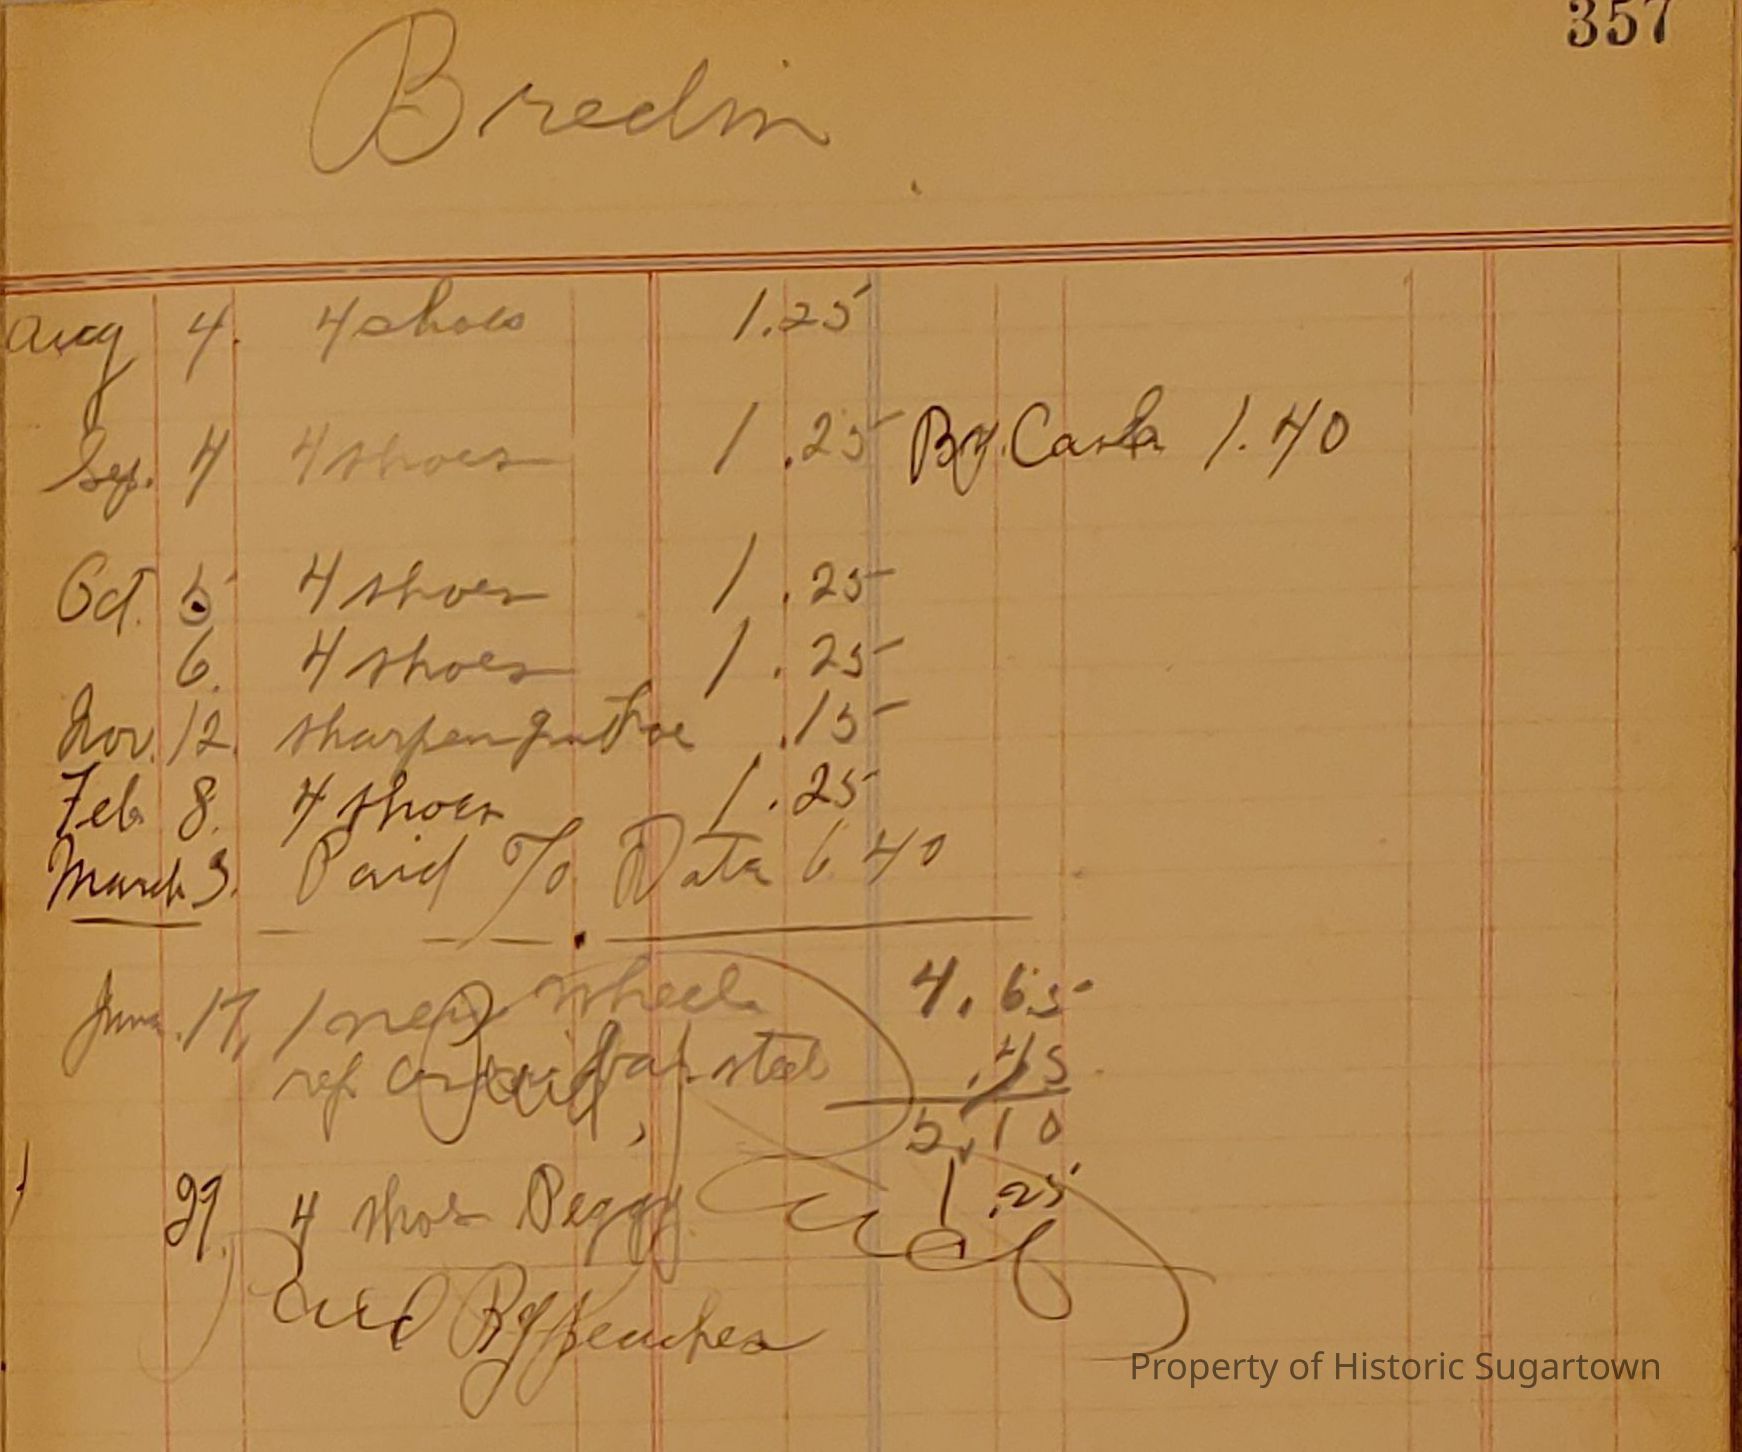 357
Bredin
Aug 4. 4 shoes 1.25
Sep. 4 4 shoes 1.25 By. Cash 1.40
Oct. 5 4 shoes 1.25
6. 4 shoes 1.25
Nov. 12. sharpen g shoe .15
Feb 8. 4 shoes 1.25
March 3. Paid To Date 6 40
June. 17, 1 new wheel 4.65
rep steel .45
Paid,
5.10
29. 4 shoes Peggy 1.25
By peaches
Property of Historic Sugartown